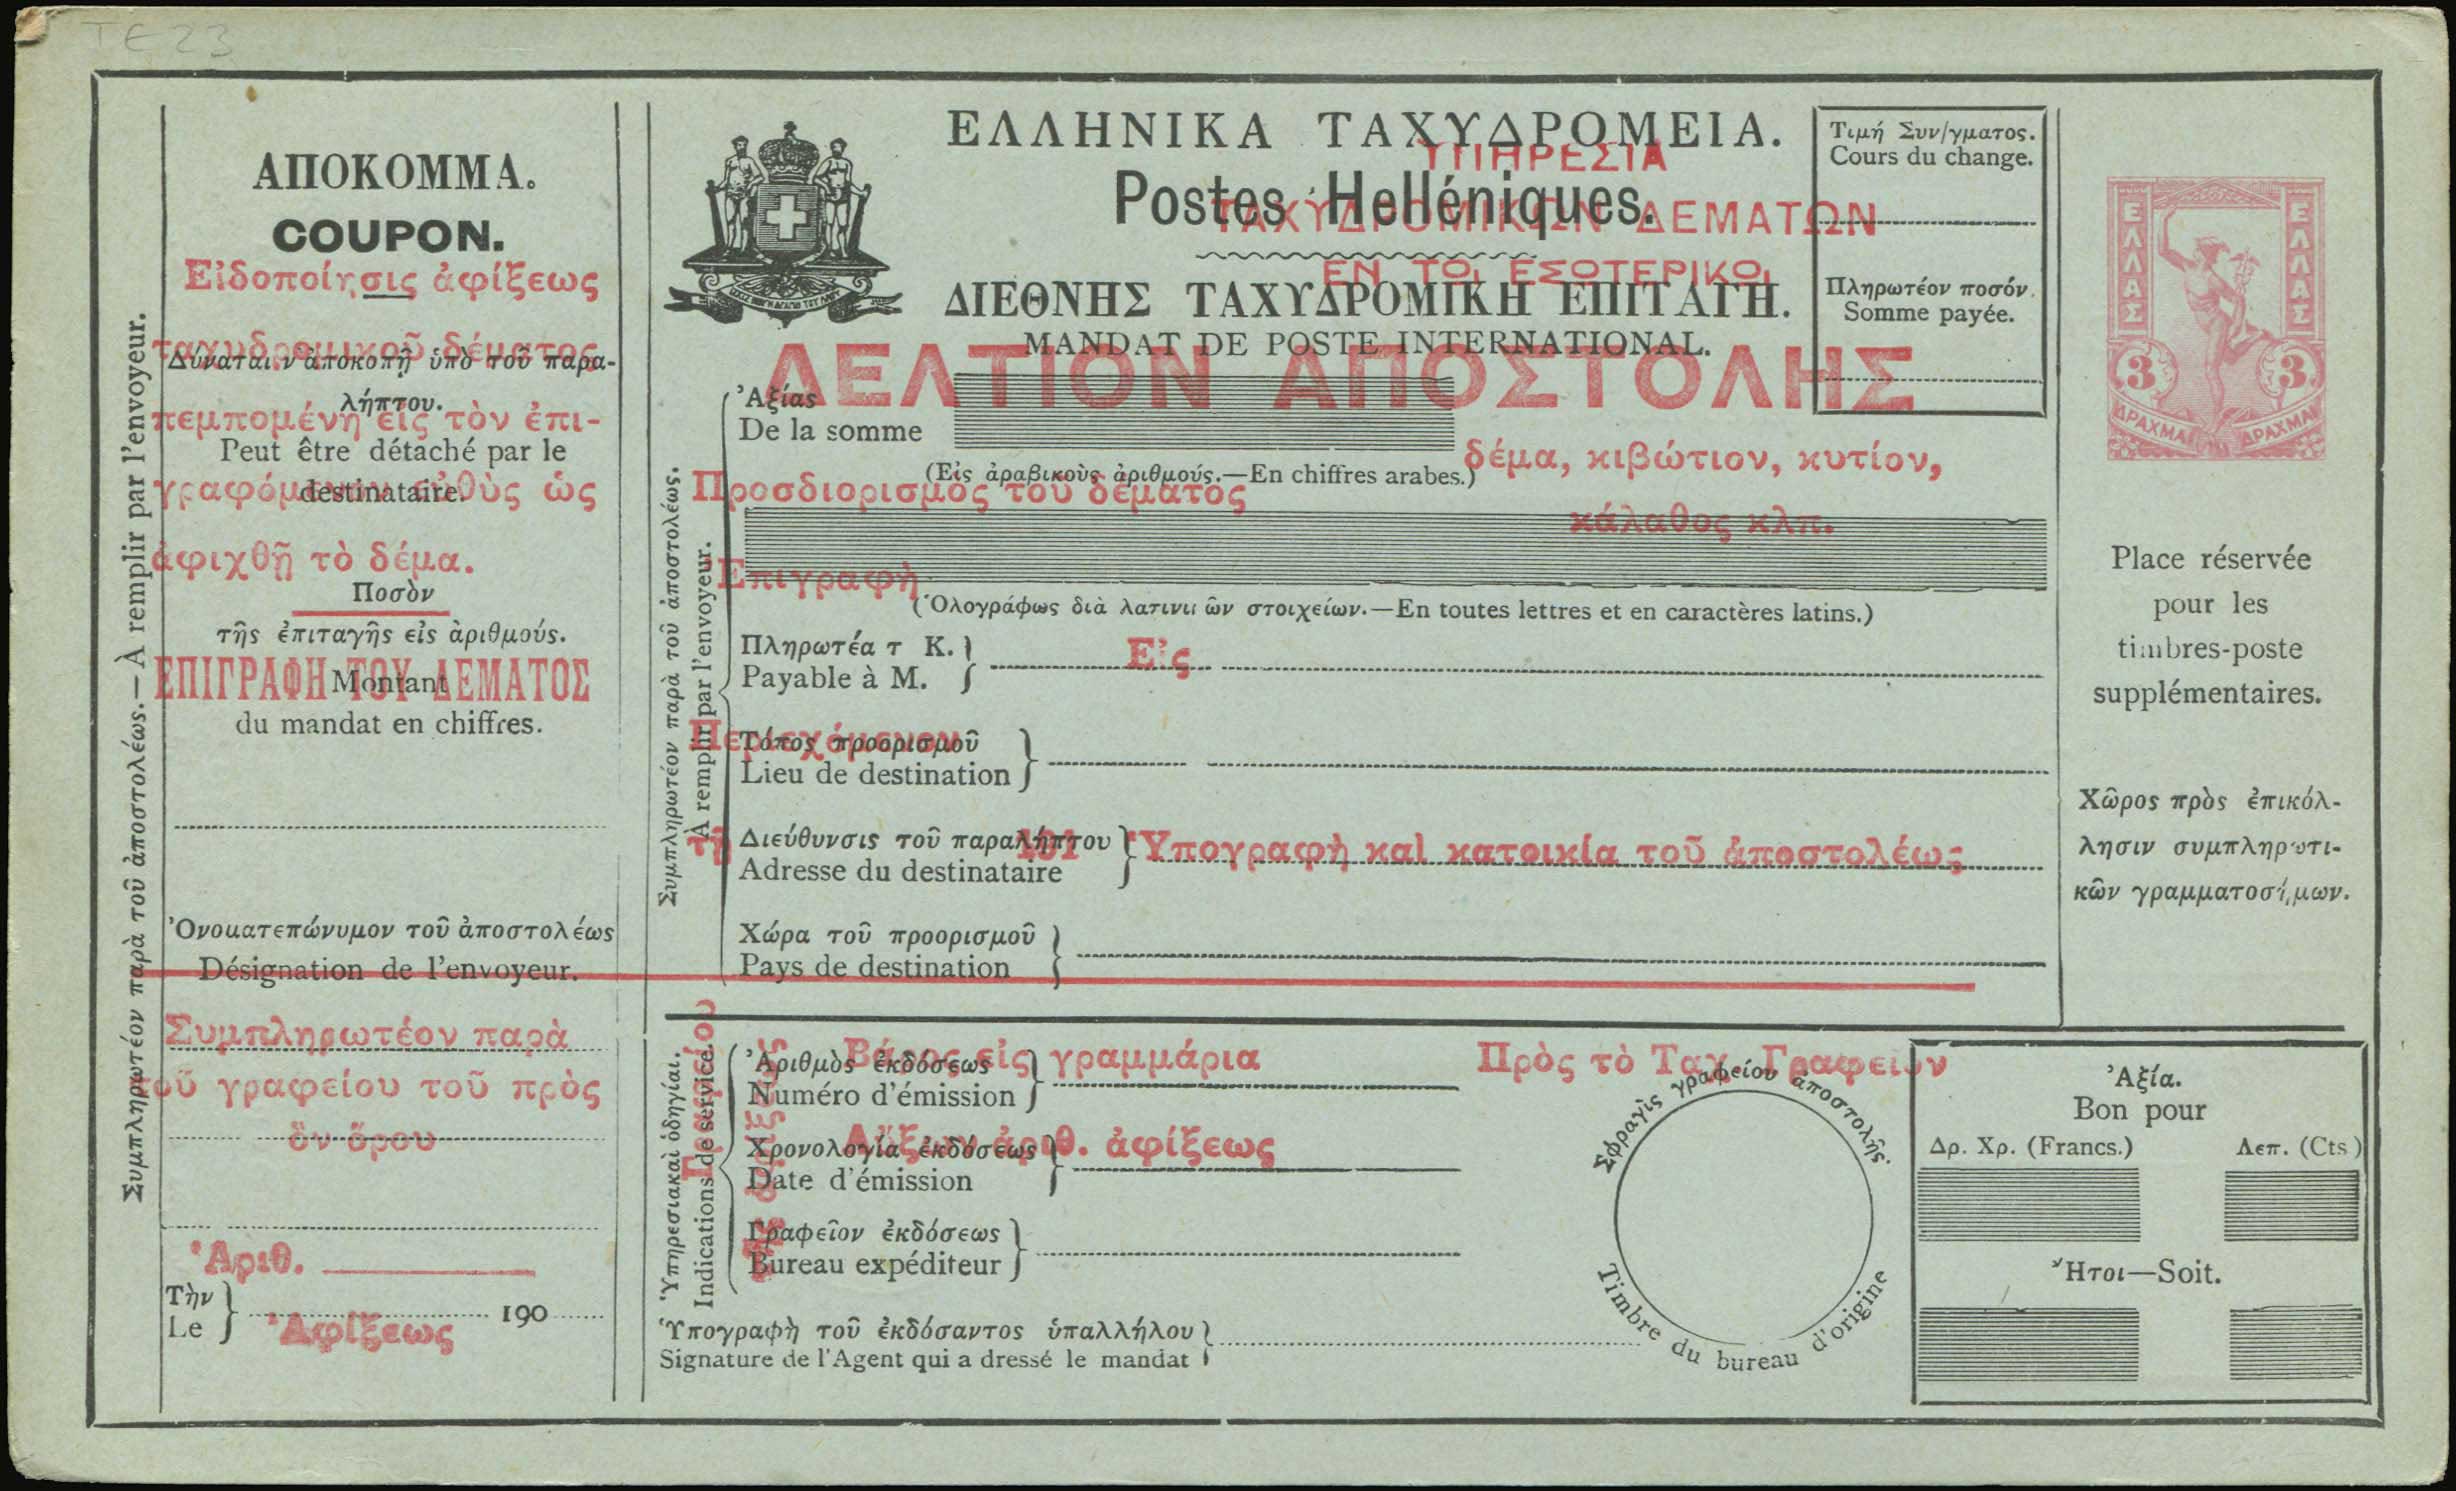 TE23
ΑΠΟΚΟΜΜΑ.
COUPON.
Εἰδοποίησις ἀφίξεως
ταχυδρομικοῦ δέματος
Δύναται ν' ἀποκοπῇ ὑπὸ τοῦ παρα-
λήπτου.
πεμπομένη εἰς τὸν ἐπι-
Peut être détaché par le
destinataire.
εὐθὺς ὡς
ἀφιχθῇ τὸ δέμα.
Ποσὸν
τῆς ἐπιταγῆς εἰς ἀριθμούς.
ΕΠΙΓΡΑΦΗ ΤΟΥ ΔΕΜΑΤΟΣ
Montant
du mandat en chiffres.
Ὀνοματεπώνυμον τοῦ ἀποστολέως
Désignation de l'envoyeur.
Συμπληρωτέον παρὰ
τοῦ γραφείου τοῦ πρὸς
ὃν ὅρου
Ἀριθ.
Τὴν
Le
190
Ἀφίξεως
Συμπληρωτέον παρὰ τοῦ ἀποστολέως. — À remplir par l'envoyeur.
ΕΛΛΗΝΙΚΑ ΤΑΧΥΔΡΟΜΕΙΑ.
ΥΠΗΡΕΣΙΑ
Postes Helléniques.
ΤΑΧΥΔΡΟΜΙΚΩΝ ΔΕΜΑΤΩΝ
ΕΝ ΤΩι ΕΣΩΤΕΡΙΚΩι
ΔΙΕΘΝΗΣ ΤΑΧΥΔΡΟΜΙΚΗ ΕΠΙΤΑΓΗ.
MANDAT DE POSTE INTERNATIONAL.
ΔΕΛΤΙΟΝ ΑΠΟΣΤΟΛΗΣ
Τιμή Συν/γματος.
Cours du change.
Πληρωτέον ποσόν.
Somme payée.
Ἀξίας
De la somme
(Εἰς ἀραβικοὺς ἀριθμούς.—En chiffres arabes.)
δέμα, κιβώτιον, κυτίον,
Προσδιορισμὸς τοῦ δέματος
κάλαθος κλπ.
Ἐπιγραφὴ
(Ὁλογράφως διὰ λατινικῶν στοιχείων.—En toutes lettres et en caractères latins.)
Πληρωτέα τ Κ.
Payable à M.
Εἰς
Περιεχόμενον
Τόπος προορισμοῦ
Lieu de destination
τῇ
Διεύθυνσις τοῦ παραλήπτου
191
Ὑπογραφὴ καὶ κατοικία τοῦ ἀποστολέως
Adresse du destinataire
Χώρα τοῦ προορισμοῦ
Pays de destination
Συμπληρωτέον παρὰ τοῦ ἀποστολέως.
À remplir par l'envoyeur.
ΕΛΛΑΣ
ΕΛΛΑΣ
3
3
ΔΡΑΧΜΑΙ
ΔΡΑΧΜΑΙ
Place réservée
pour les
timbres-poste
supplémentaires.
Χῶρος πρὸς ἐπικόλ-
λησιν συμπληρωτι-
κῶν γραμματοσήμων.
Βάρος εἰς γραμμάρια
Ἀριθμὸς ἐκδόσεως
Numéro d'émission
Αὔξων ἀριθ. ἀφίξεως
Χρονολογία ἐκδόσεως
Date d'émission
Γραφεῖον ἐκδόσεως
Bureau expéditeur
Ὑπογραφὴ τοῦ ἐκδόσαντος ὑπαλλήλου
Signature de l'Agent qui a dressé le mandat
Ὑπηρεσιακαὶ ὁδηγίαι.
Indications de service.
Γραφείου
Πρὸς τὸ Ταχ. Γραφεῖον
Σφραγὶς γραφείου ἀποστολῆς.
Timbre du bureau d'origine
Ἀξία.
Bon pour
Δρ. Χρ. (Francs.)
Λεπ. (Cts)
Ἤτοι—Soit.